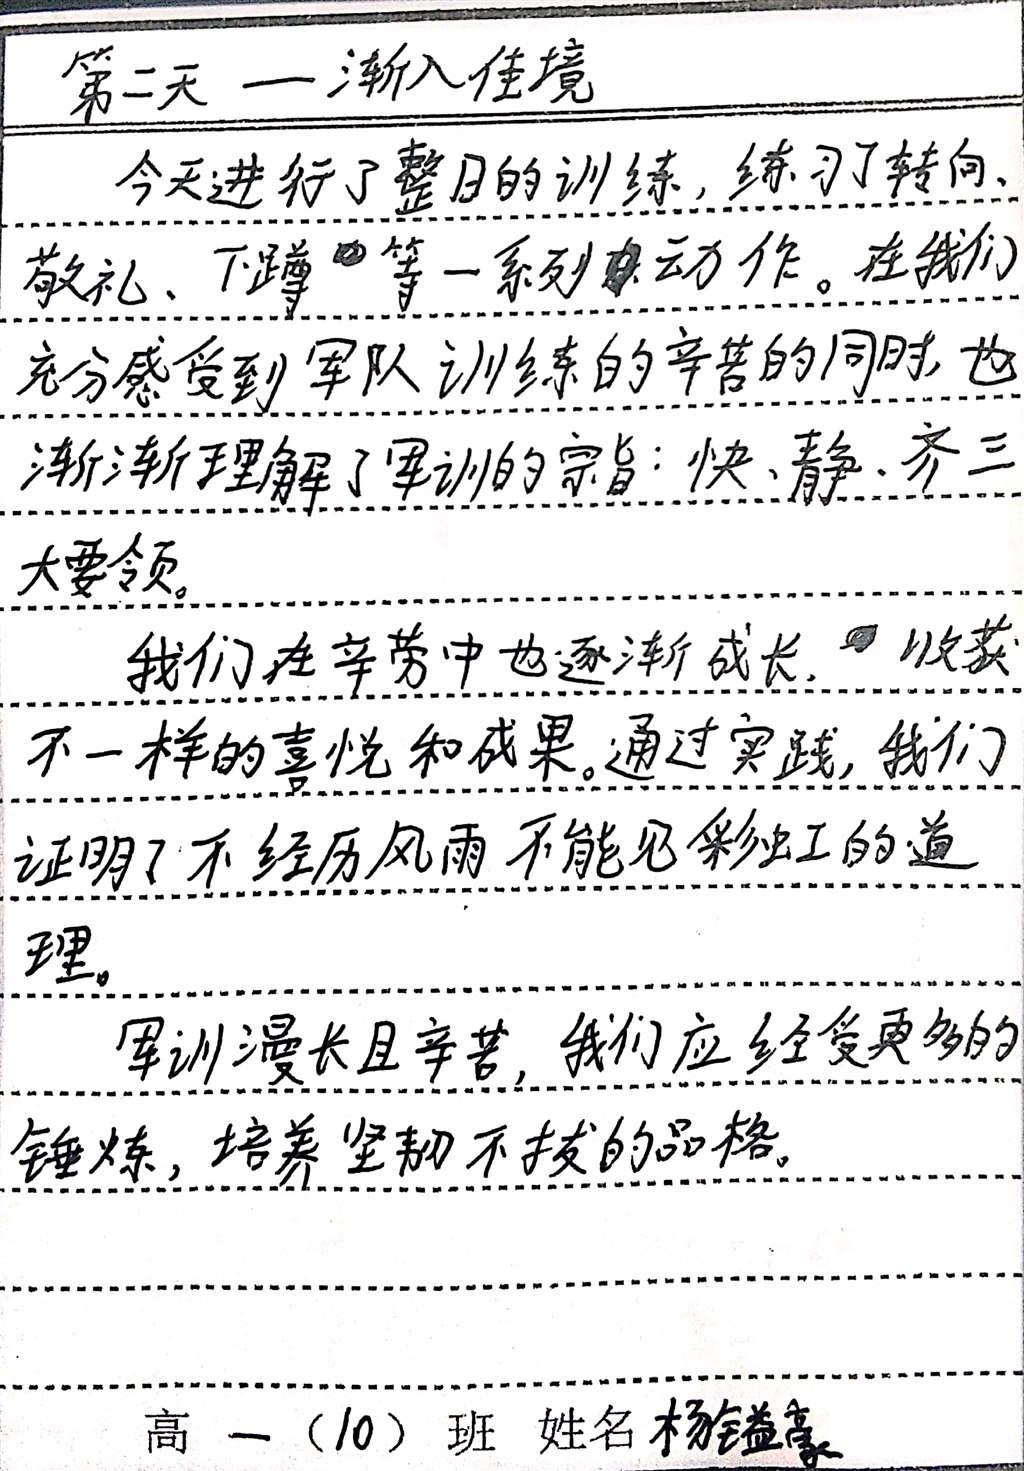 第二天 — 渐入佳境
今天进行了整日的训练，练习了转向、
敬礼、下蹲等一系列动作。在我们
充分感受到军队训练的辛苦的同时，也
渐渐理解了军训的宗旨：快、静、齐三
大要领。
我们在辛劳中也逐渐成长，收获
不一样的喜悦和成果。通过实践，我们
证明了不经历风雨不能见彩虹的道
理。
军训漫长且辛苦，我们应经受更多的
锤炼，培养坚韧不拔的品格。
高一（10）班 姓名 杨镒豪